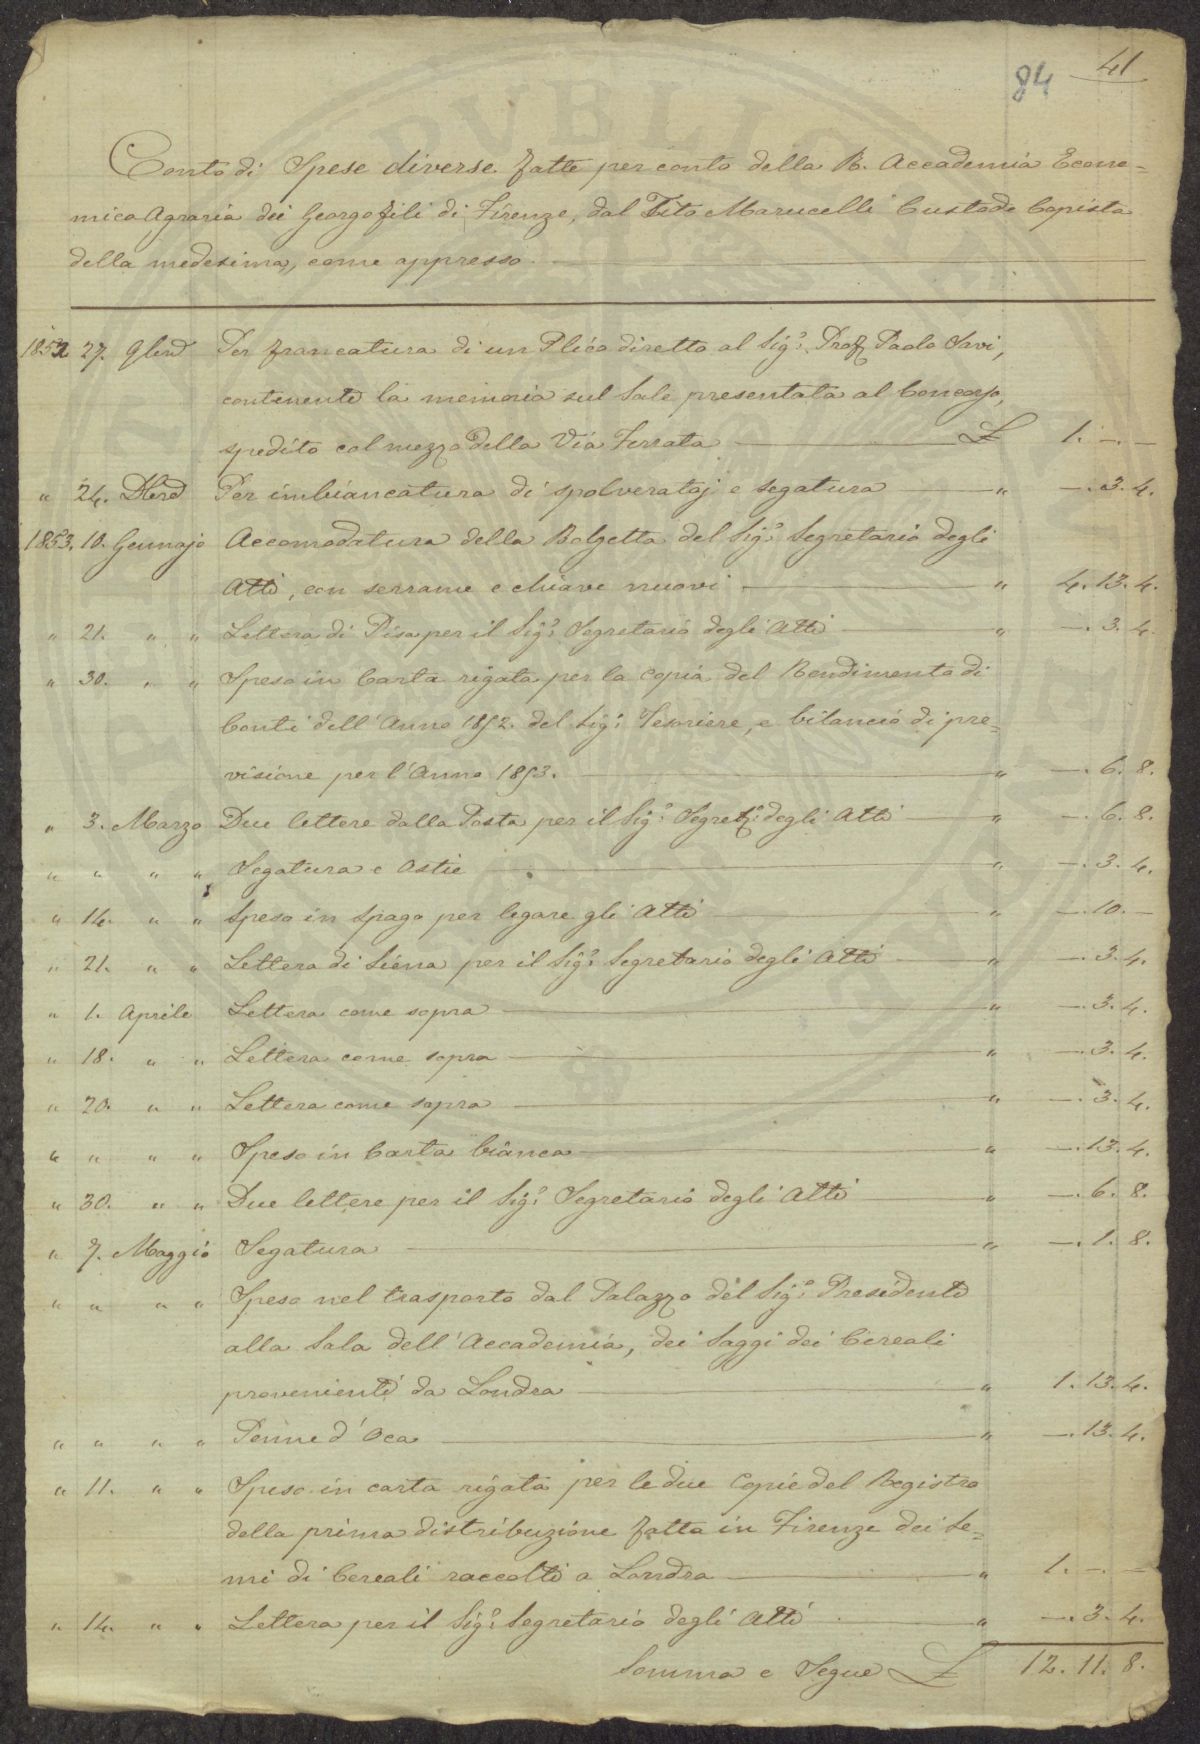 84 41
Conto di Spese diverse fatte per conto della R. Accademia Econo-
mico Agraria dei Georgofili di Firenze, dal Tito Marucelli Custode Copista
della medesima, come appresso
1852 27. 9bre Per francatura di un Plico diretto al Sigr. Prof. Paolo Savi,
contenente la memoria sul Sale presentata al Concorso,
spedito col mezzo della Via Ferrata £ 1. — . —
" 24. Xbre Per imbiancatura di spolverataj e segatura " — . 3. 4.
1853. 10. Gennajo Accomodatura della Bolgetta del Sigr. Segretario degli
Atti, con serrame e chiave nuovi " 4. 13. 4.
" 21. " " Lettera di Pisa per il Sigr. Segretario degli Atti " — . 3. 4.
" 30. " " Speso in Carta rigata per la copia del Rendimento di
Conti dell'Anno 1852. del Sigr. Tesoriere, e bilancio di pre-
visione per l'Anno 1853. " — . 6. 8.
" 3. Marzo Due lettere dalla Posta per il Sigr. Segret.o degli Atti " — . 6. 8.
" " " " Segatura e Ostie " — . 3. 4.
" 14. " " Speso in Spago per legare gli Atti " — . 10. —
" 21. " " Lettera di Siena per il Sigr. Segretario degli Atti " — . 3. 4.
" 1. Aprile Lettera come sopra " — . 3. 4.
" 18. " " Lettera come sopra " — . 3. 4.
" 20. " " Lettera come sopra " — . 3. 4.
" " " " Speso in Carta bianca " — . 13. 4.
" 30. " " Due lettere per il Sigr. Segretario degli Atti " — . 6. 8.
" 7. Maggio Segatura " — . 1. 8.
" " " " Speso nel trasporto dal Palazzo del Sigr. Presidente
alla Sala dell'Accademia, dei Saggi dei Cereali
provenienti da Londra " 1. 13. 4.
" " " " Penne d'Oca " — . 13. 4.
" 11. " " Speso in carta rigata per le due Copie del Registro
della prima distribuzione fatta in Firenze dei Se-
mi di Cereali raccolti a Londra " 1. — . —
" 14. " " Lettera per il Sigr. Segretario degli Atti " — . 3. 4.
Somma e Segue £ 12. 11. 8.